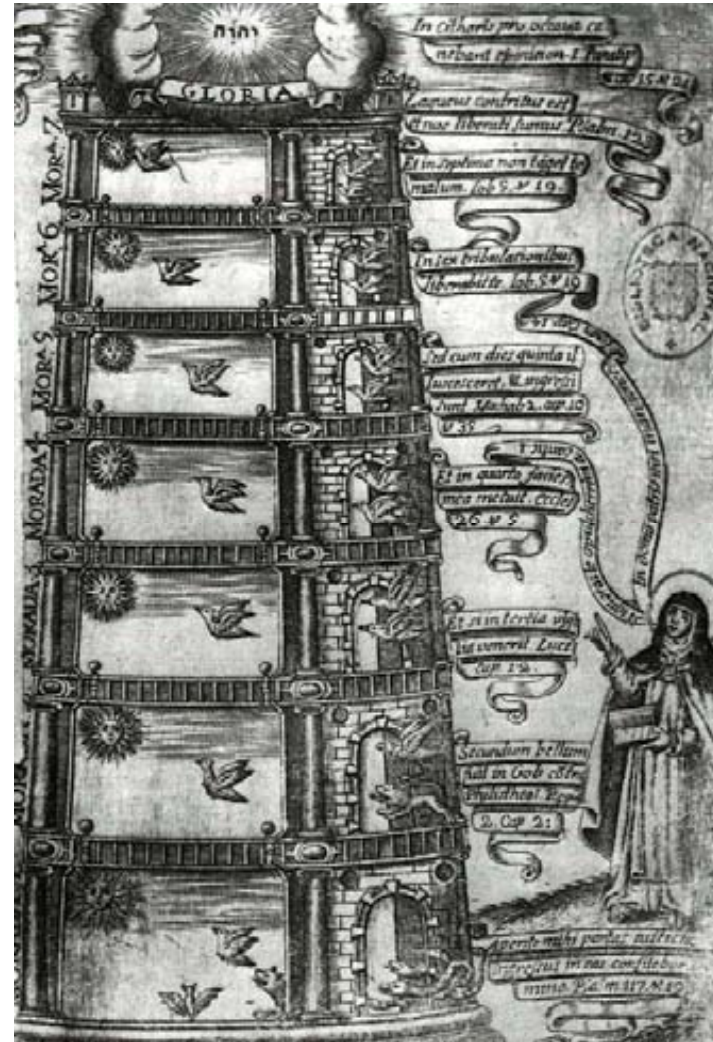 יהוה
GLORIA
In citharis pro octava ca
nebant epinicion. I. Paralip
15. ℣ 21
Laqueus contritus est
et nos liberati sumus. Psalm. 123
Et in septima non tãget te
malum. Iob 5. ℣ 19.
In sex tribulationibus
liberabit te. Iob. 5. ℣ 19
Sed cum dies quinta il
luxcesceret,
sunt. Machab 2. cap. 10
℣ 35
Et in quarto facies
mea metuit. Eccles
26. ℣ 5
Et si in tertia vigi
lia venerit. Lucæ
Cap. 12.
Secundum bellum
fuit in Gob cõtra
Philistheos.
2. Cap. 21
Aperite mihi portas iustitiæ
ingressus in eas confitebor
Domino. Psa. m 117. ℣ 19
MORA. 7
MOR. 6
MORA. 5
MORADA 4
MORADA 3
BIBLIOTECA NACIONAL